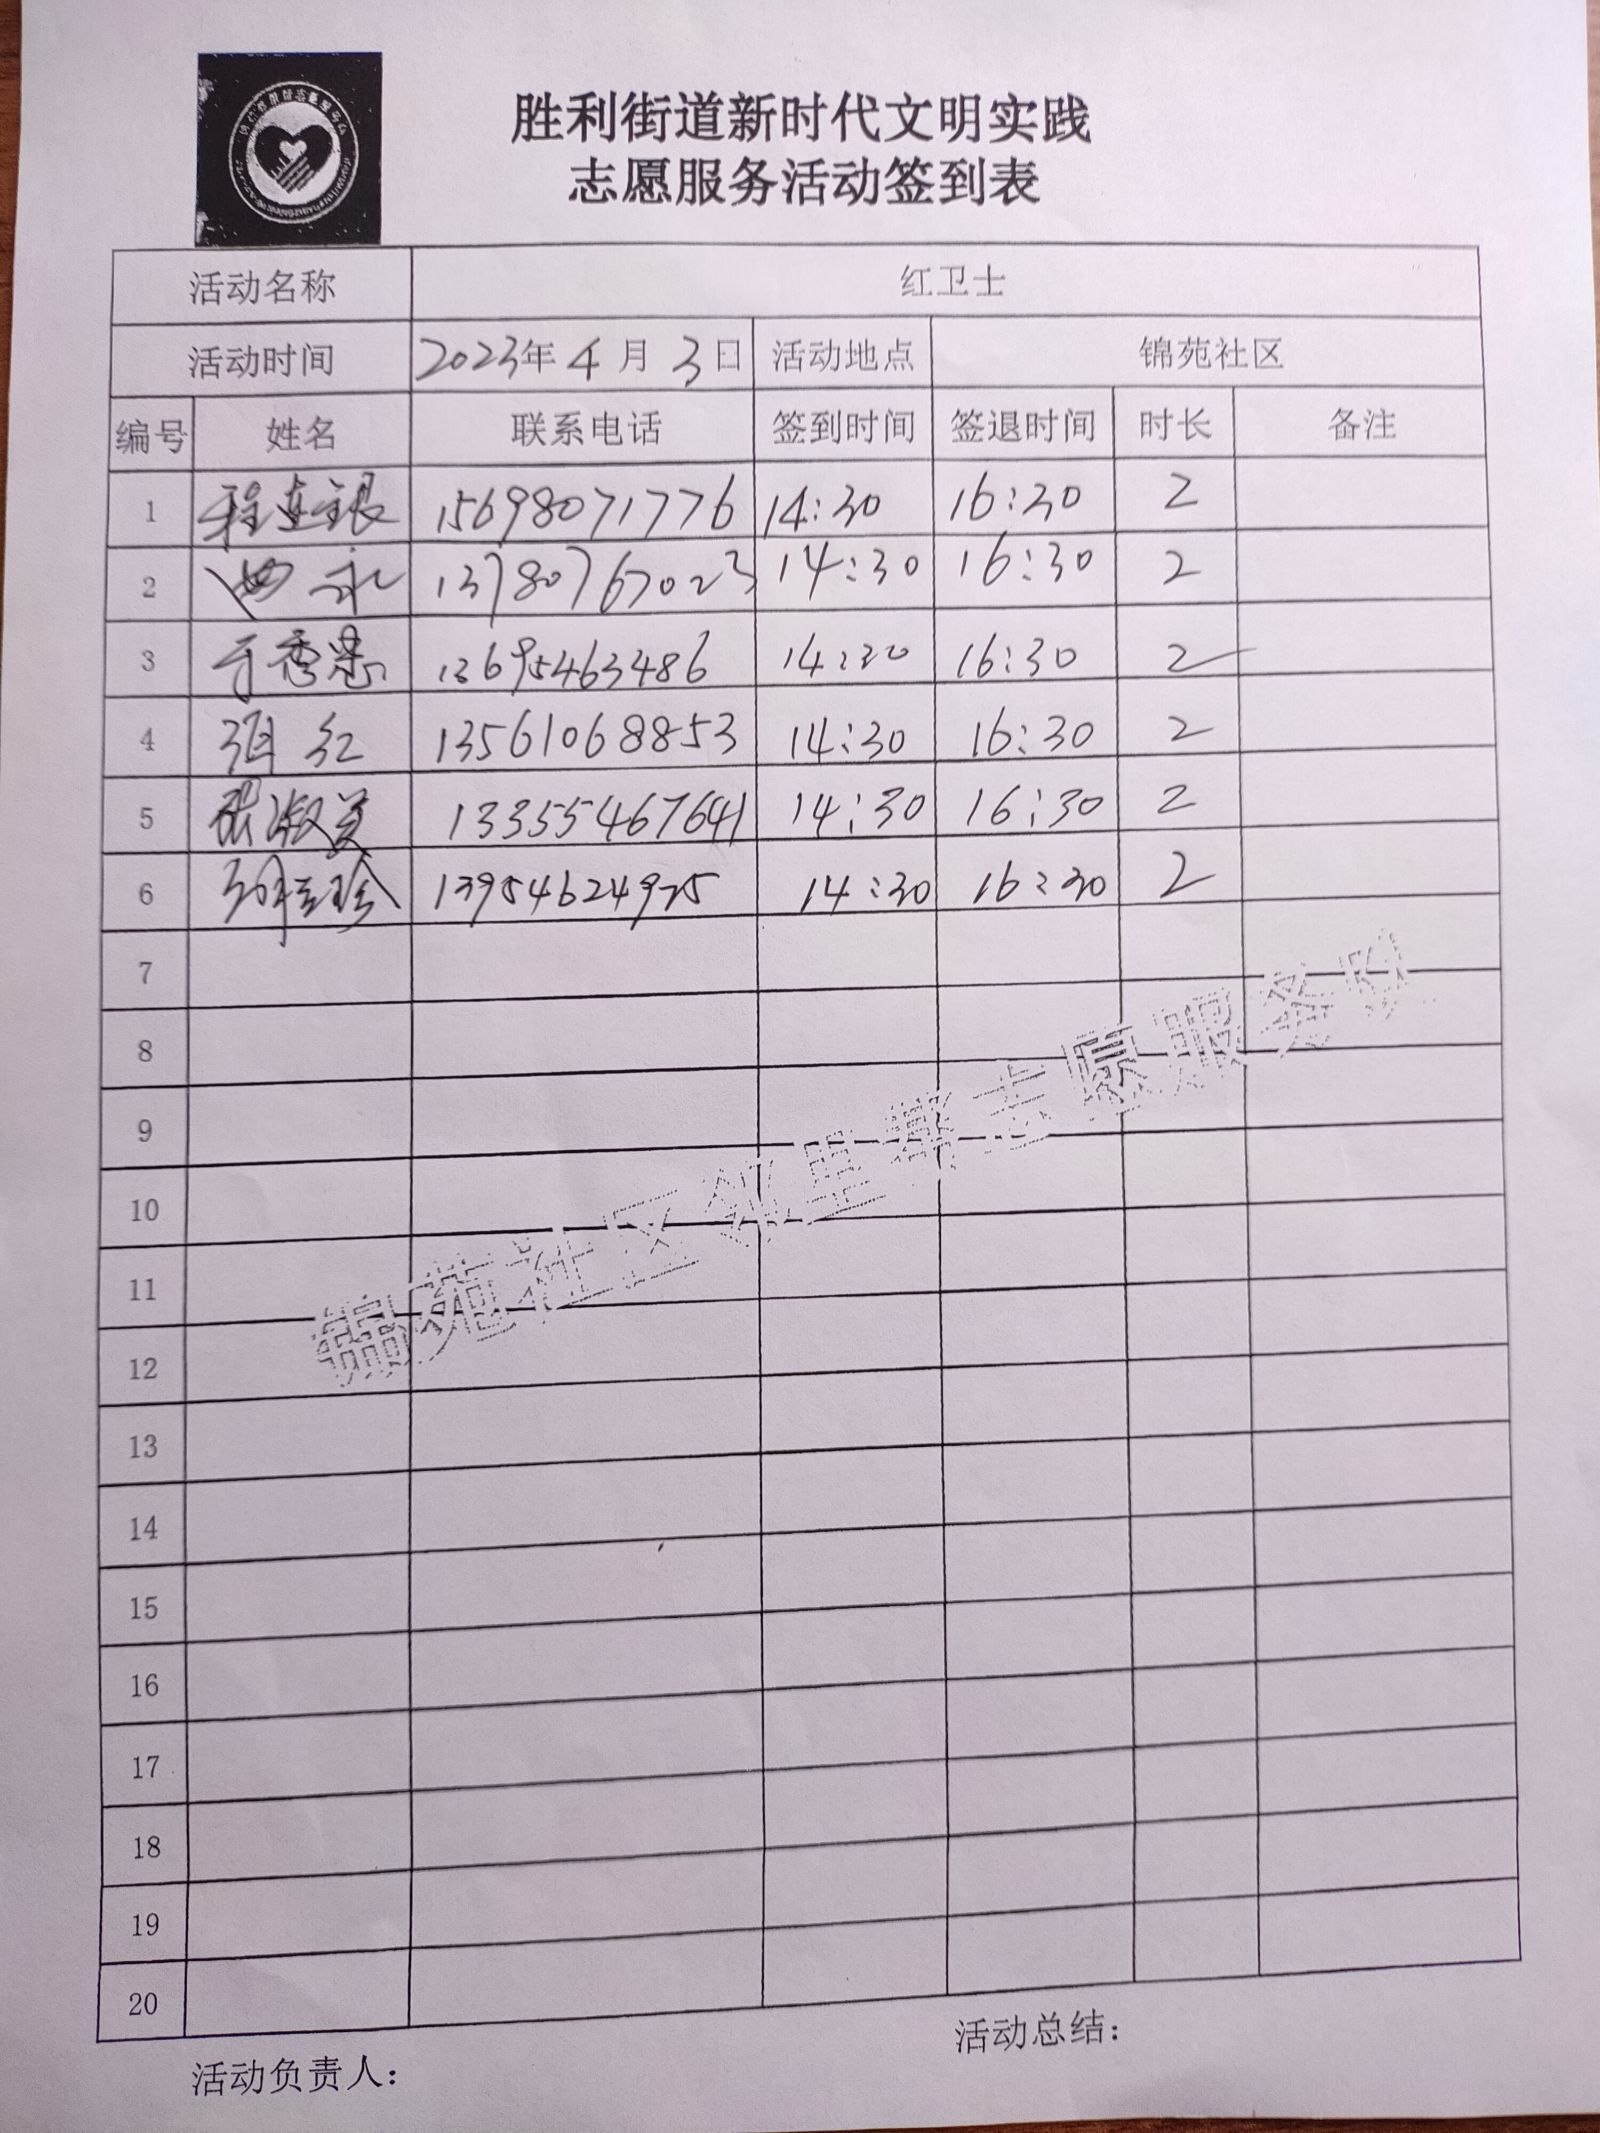 胜利街道新时代文明实践
志愿服务活动签到表
活动名称 红卫士
活动时间 2023年 4 月 3 日 活动地点 锦苑社区
编号 姓名 联系电话 签到时间 签退时间 时长 备注
1 程连银 15698071776 14:30 16:30 2
2 永 13780767023 14:30 16:30 2
3 于秀 13695463486 14:30 16:30 2
4 红 13561068853 14:30 16:30 2
5 张淑美 13355467641 14:30 16:30 2
6 珍 14:30 16:30 2
7
8
9
10
11
12
13
14
15
16
17
18
19
20
锦苑社区邻里帮志愿服务队
活动负责人： 活动总结：